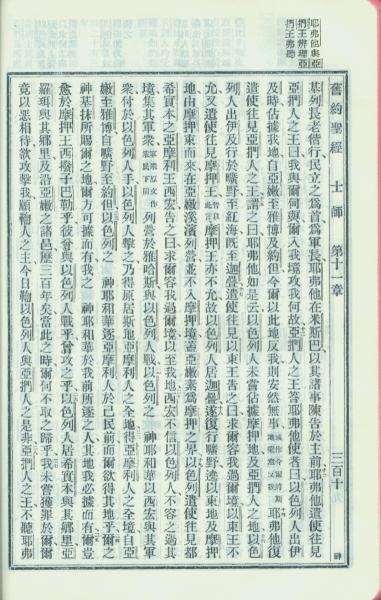 耶弗他與亞
捫王辨理亞
捫王弗聽
舊約聖經 士師 第十一章 三百十 神
基列長老偕行民立之爲首爲軍長耶弗他在米斯巴以其諸事陳告於主前耶弗他遣使往見
亞捫人之王曰我與爾何與爾入我境攻我何故亞捫人之王答耶弗他使者曰以色列人出伊
及時佔據我地自亞嫩至雅博及約但今爾以此地反我則安然無事耶弗他復
遣使往見亞捫人之王謂之曰耶弗他如是云以色列人未嘗佔據摩押地及亞捫人之地以色
列人出伊及行於曠野至紅海旣至迦疊遣使往見以東王告之曰求爾容我過爾境以東王不
允又遣使往見摩押王摩押王亦不允故以色列人居迦疊遂復行曠野遶以東地及摩押
地由摩押東而來在亞嫩溪濱列營並不入摩押境蓋亞嫩素爲摩押之界以色列遣使往見都
希實本之亞摩利王西宏告之曰求爾容我過爾境以至我地西宏不信以色列人不容之過其
境集其軍衆列營於雅哈斯與以色列人戰以色列之 神耶和華以西宏與其軍
衆付於以色列人手以色列人擊之乃得原居斯地亞摩利人之全地得亞摩利人之全境自亞
嫩至雅博自曠野至約但以色列之 神耶和華旣逐亞摩利人於己民前而爾欲得其地乎爾之
神基抹所賜爾之地爾方可據而有我之 神耶和華於我前所逐之人其地我必據而有爾豈
愈於摩押王西撥子巴勒乎彼曾與以色列人戰乎曾攻之乎以色列人居希實本與其鄉里亞
羅珥與其鄉里及沿亞嫩之諸邑歷三百年矣當此之時爾何不取之歸乎我未嘗獲罪於爾爾
竟以惡相待欲攻擊我願鞫人之主今日鞫以色列人與亞捫人之是非亞捫人之王不聽耶弗